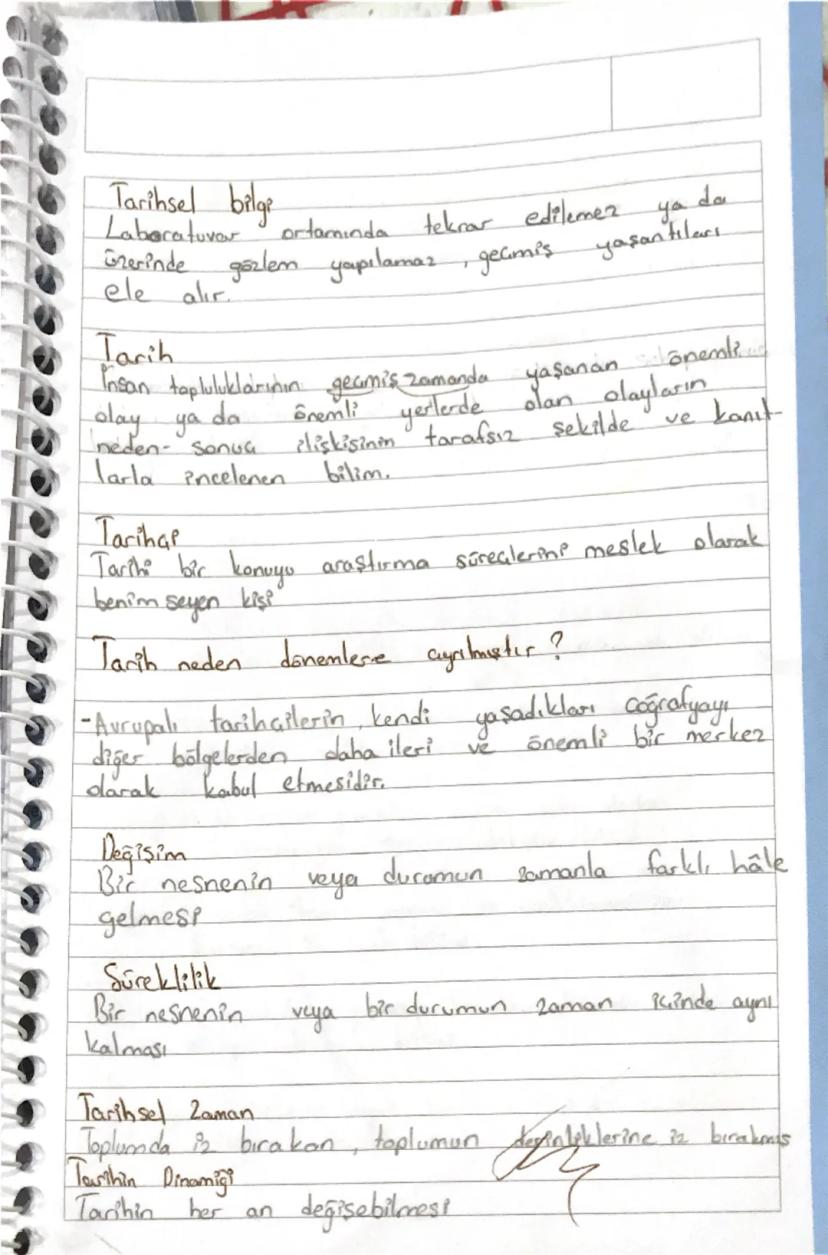 Tarihsel bilgi
Laboratuvar ortamında tekrar edilemez ya da
üzerinde gözlem yapılamaz, geçmiş yaşantıları
ele alır.
Tarih
İnsan topluluklarının geçmiş zamanda yaşanan önemli
olay ya da önemli yerlerde olan olayların
neden-sonuç ilişkisinin tarafsız şekilde ve kanıt-
larla incelenen bilim.
Tarihçi
Tarihi bir konuyu araştırma süreçlerini meslek olarak
benimseyen kişi
Tarih neden dönemlere ayrılmıştır?
-Avrupalı tarihçilerin, kendi yaşadıkları coğrafyayı
diğer bölgelerden daha ileri ve önemli bir merkez
olarak kabul etmesidir.
Değişim
Bir nesnenin veya durumun zamanla farklı hâle
gelmesi
Süreklilik
Bir nesnenin veya bir durumun zaman içinde aynı
kalması
Tarihsel Zaman
Toplumda iz bırakan, toplumun derinliklerine iz bırakmış
Tarihin Dinamiği
Tarihin her an değişebilmesi